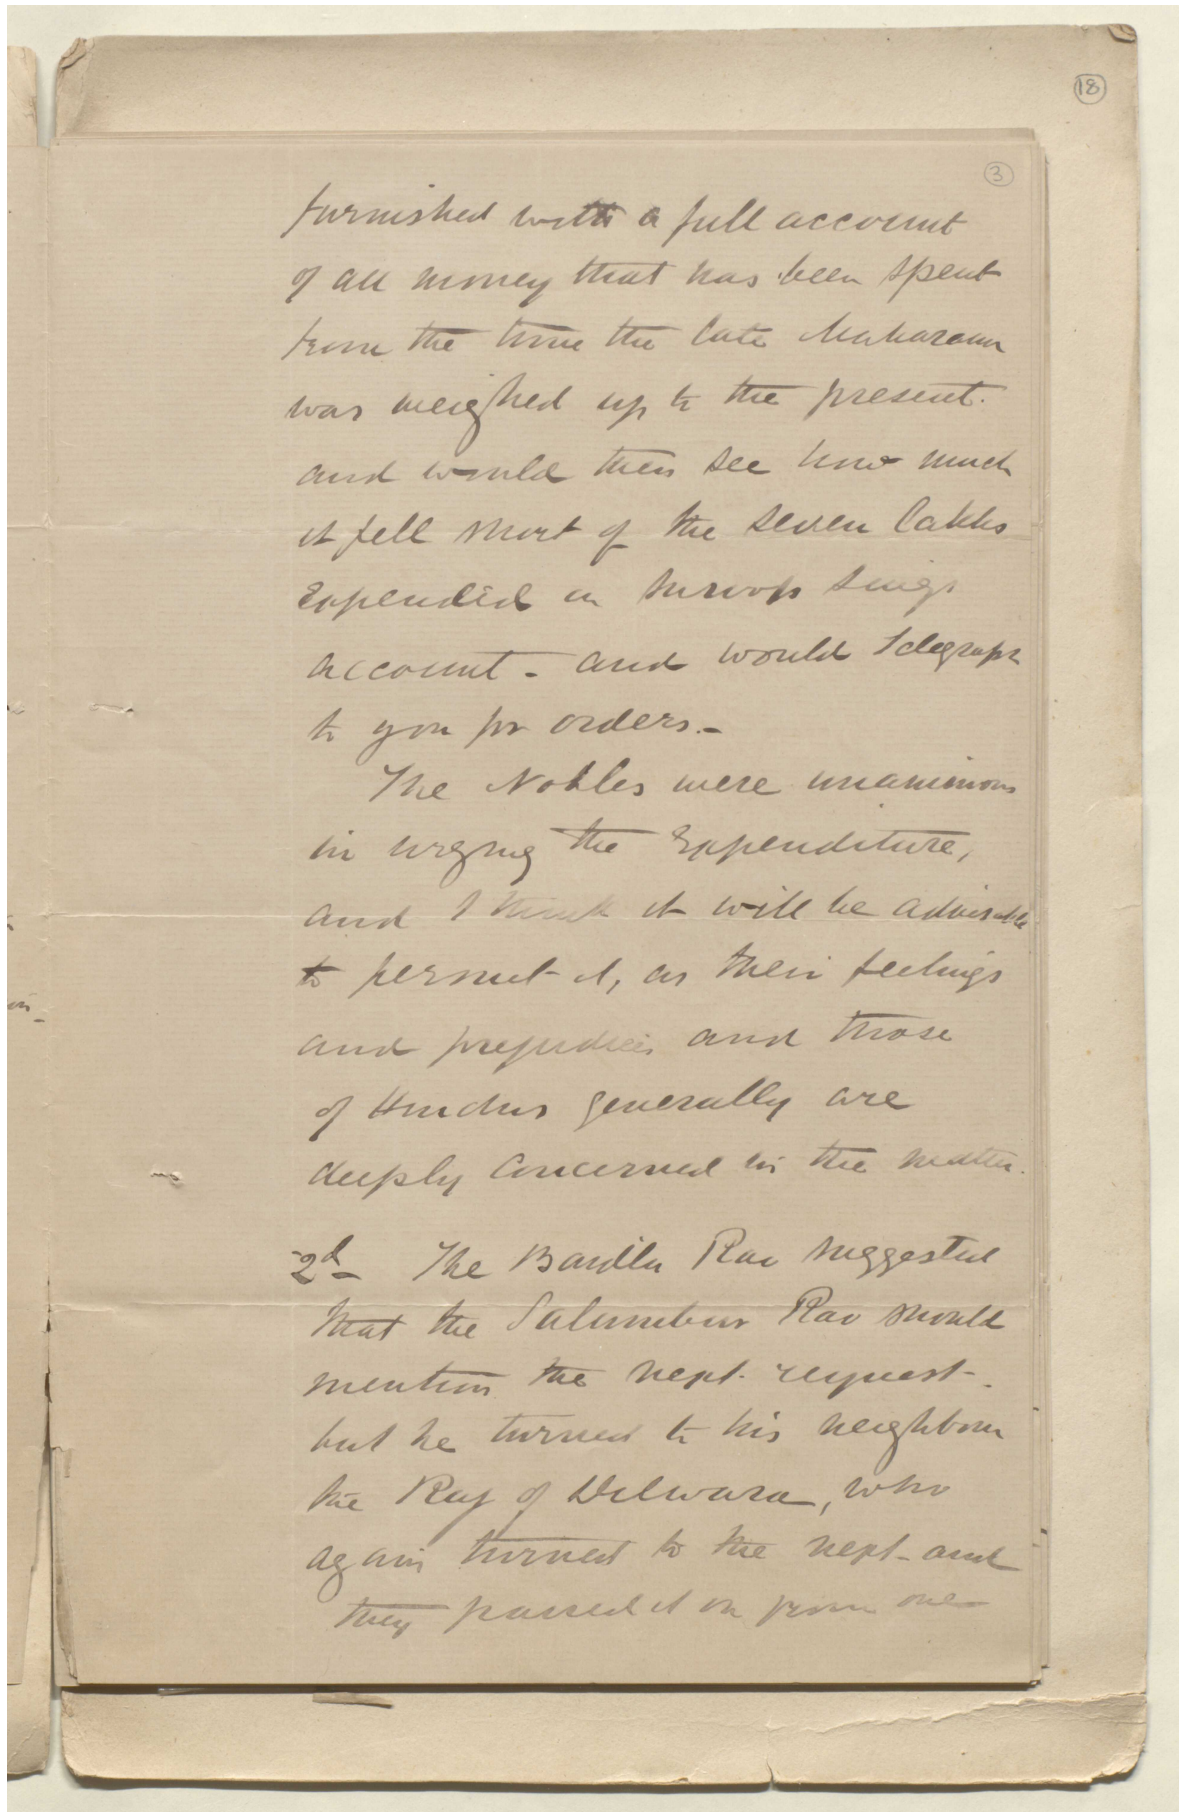 18
3
furnished with a full account
of all money that has been spent
from the time the late Maharana
was weighed up to the present.
and would then see how much
it fell short of the seven lakhs
expended in Suroop Sings
account - and would Telegraph
to you for orders. -
The Nobles were unanimous
in urging the Expenditure,
and I think it will be advisable
to permit it, as their feelings
and prejudices and those
of Hindus generally are
deeply concerned in the matter.
2d The Baidla Rao suggested
that the Salumbur Rao should
mention the next request -
but he turned to his neighbour
the Raj of Dilwara, who
again turned to the next - and
they passed it on from one